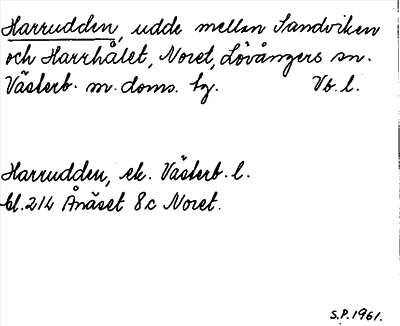 Harrudden, udde mellan Sandviken
och Harrhålet, Noret, Lövångers sn.
Västerb. m. doms. tg. Vb. l.
Harrudden, ek. Västerb. l.
bl. 214 Ånäset 8c Noret.
S.P. 1961.